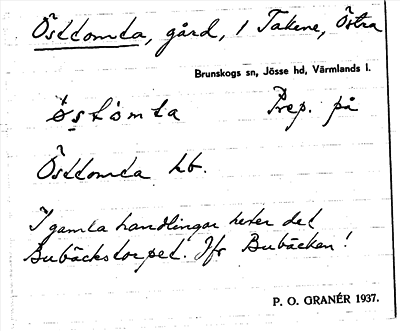 Östtomta, gård, i Takene, Östra
Brunskogs sn, Jösse hd, Värmlands l.
östomta Prep. på
Östtomta kb.
I gamla handlingar heter det
Bubäckstorpet. Jfr Bubäcken!
P. O. GRANÉR 1937.